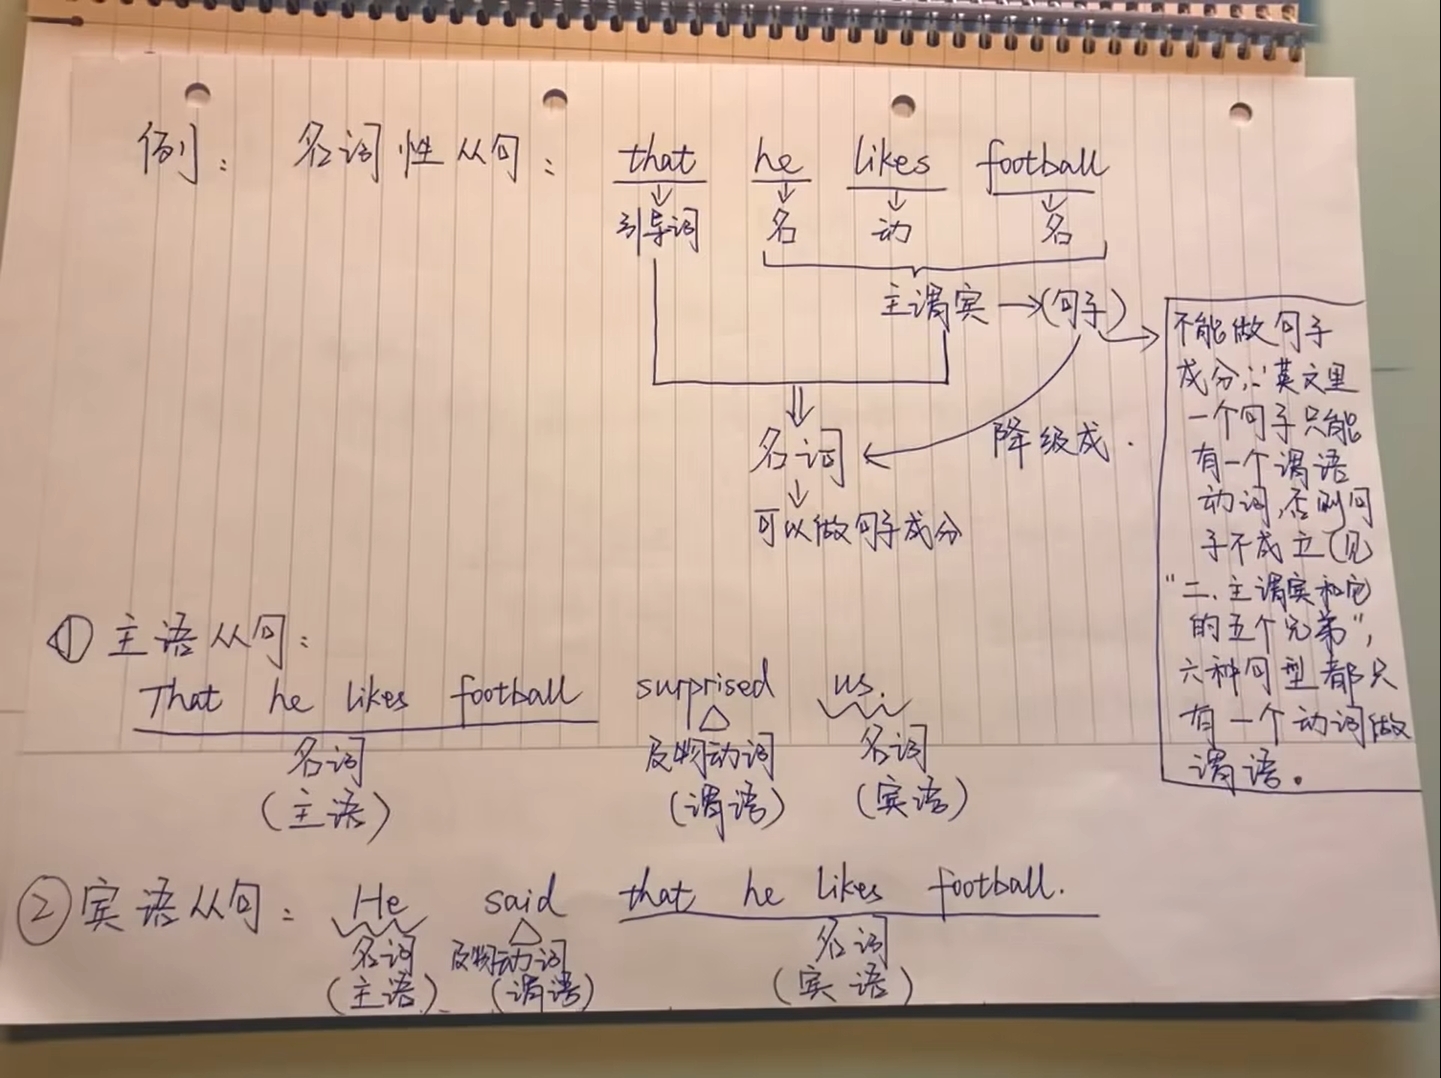 例： 名词性从句： that he likes football
引导词 名 动 名
主谓宾 →(句子)
不能做句子
成分,∵英文里
一个句子只能
有一个谓语
动词,否则句
子不成立(见
"二.主谓宾和它
的五个兄弟",
六种句型都只
有一个动词做
谓语。
名词
降级成.
可以做句子成分
① 主语从句：
That he likes football surprised us.
名词 及物动词 名词
(主语) (谓语) (宾语)
② 宾语从句： He said that he likes football.
名词 及物动词 名词
(主语) (谓语) (宾语)